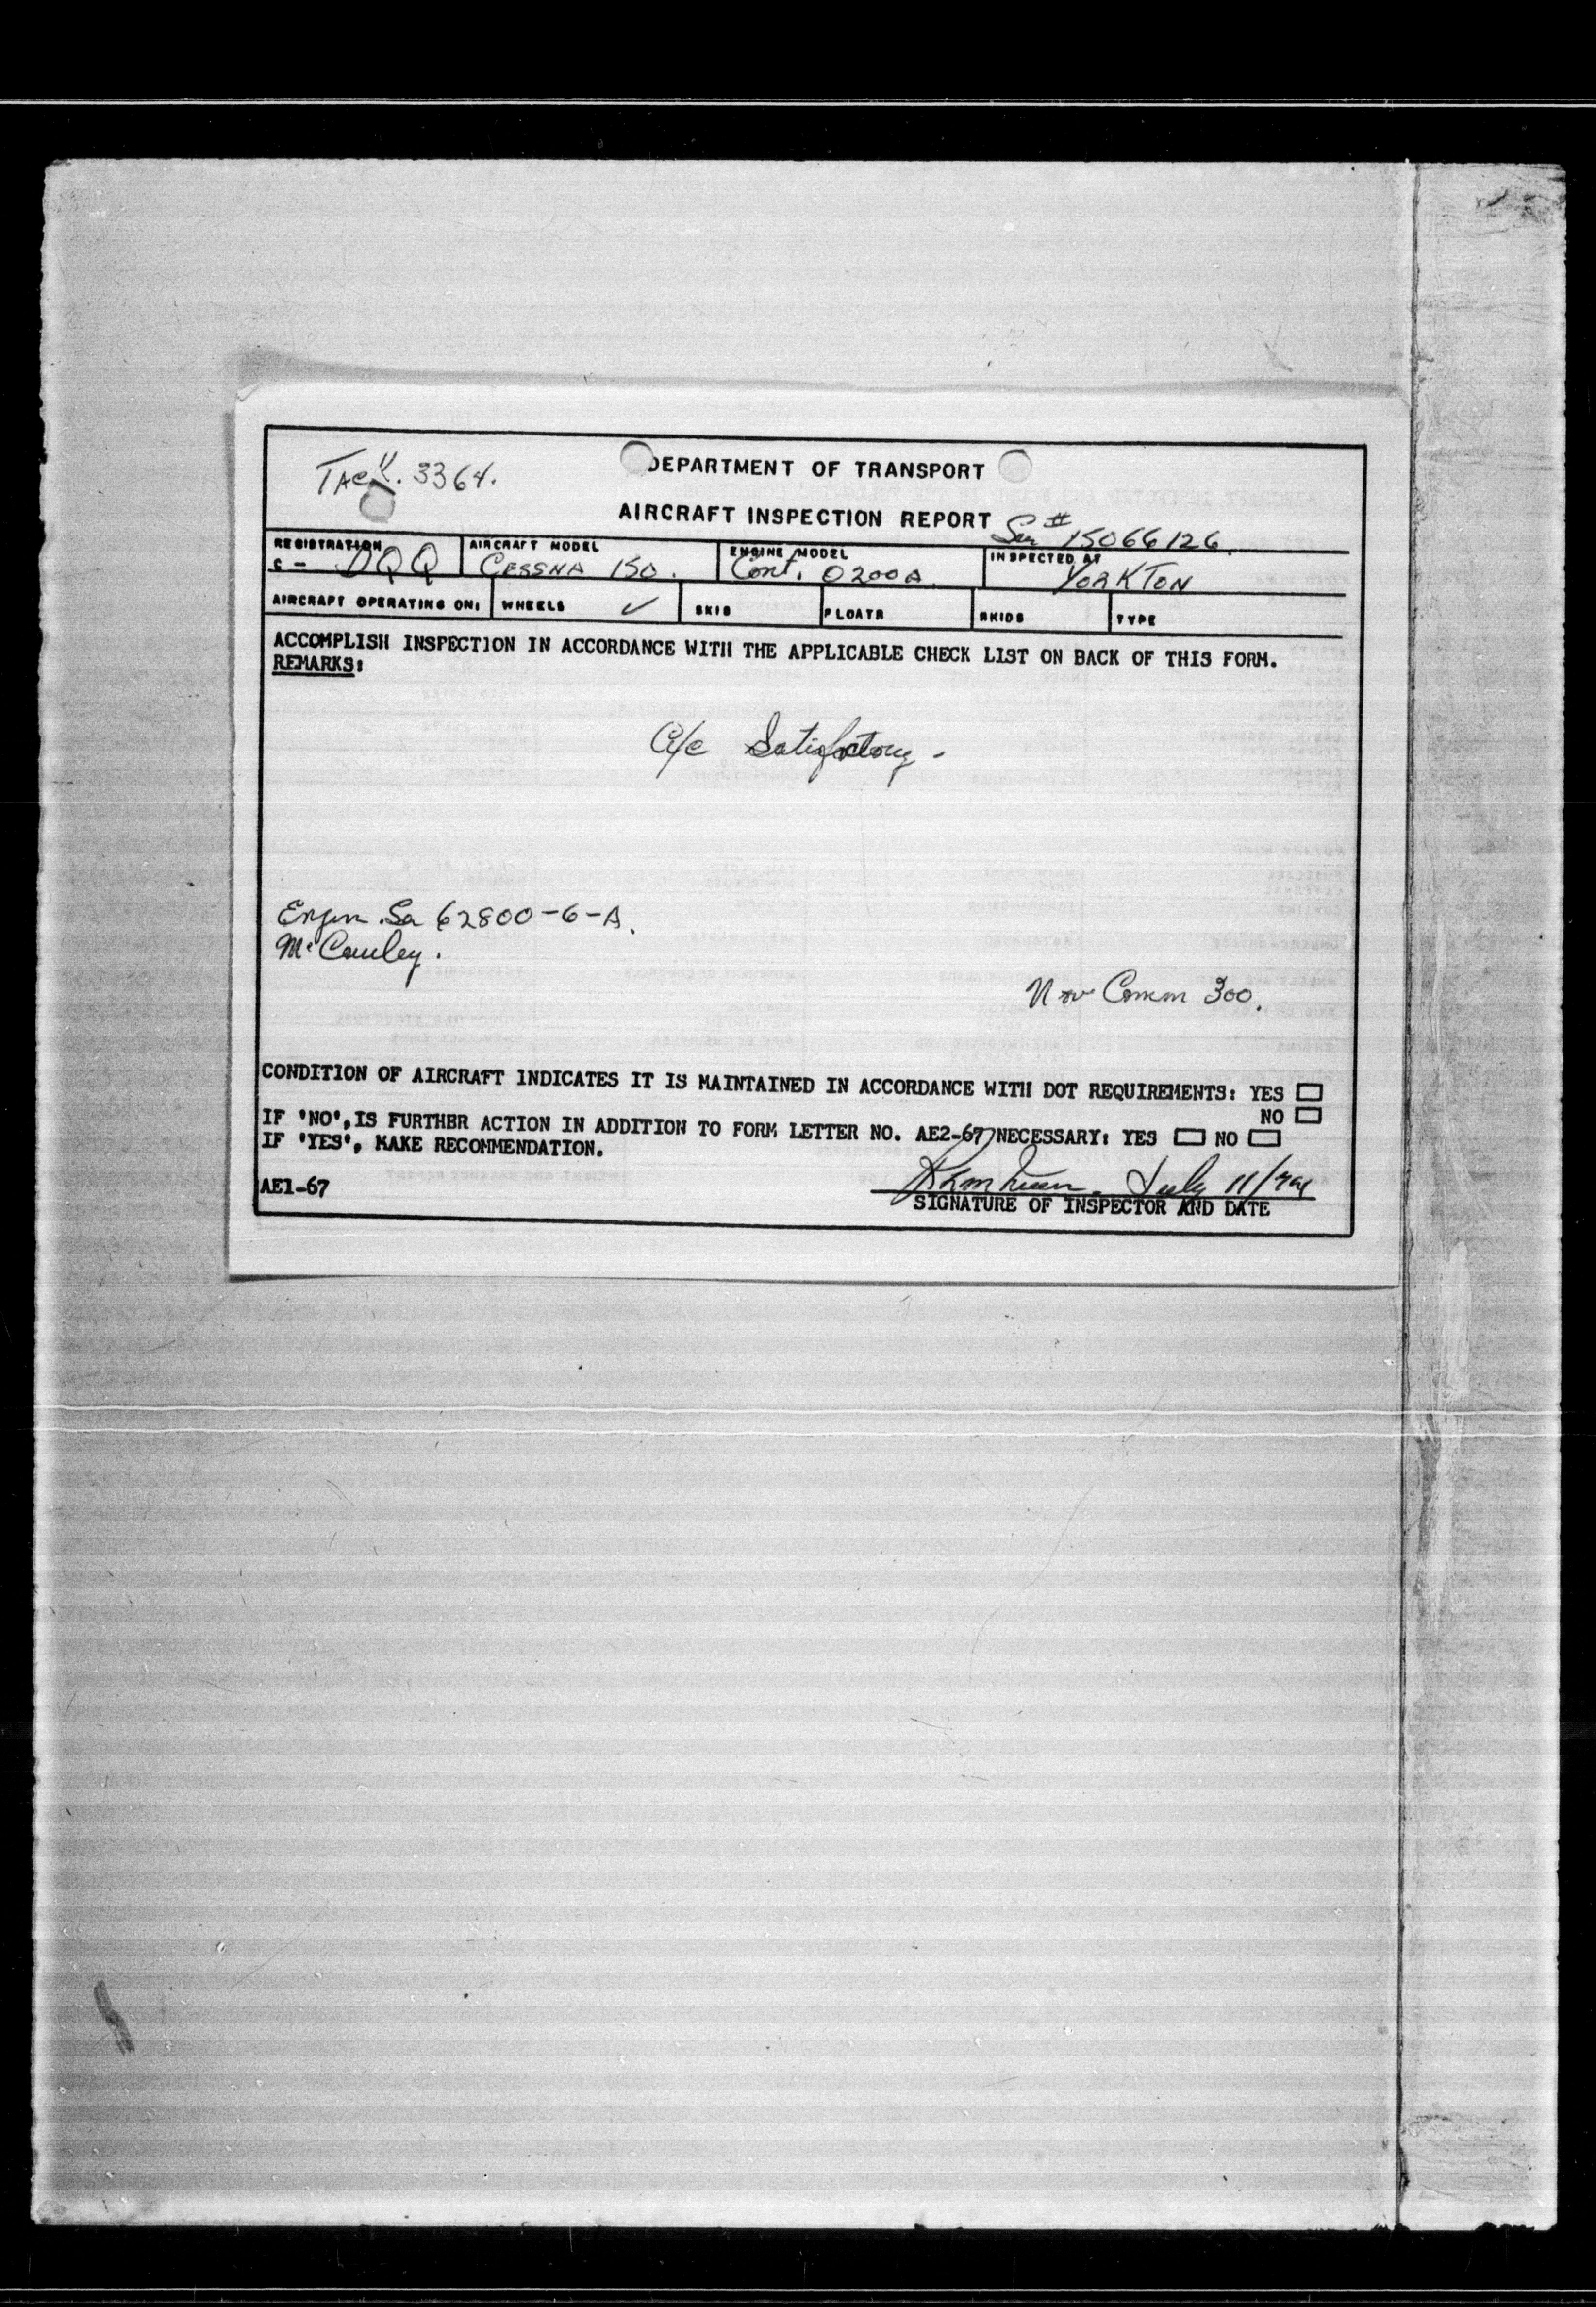 TACH. 3364.
DEPARTMENT OF TRANSPORT
AIRCRAFT INSPECTION REPORT
Ser # 15066126.
REGISTRATION C - DQQ AIRCRAFT MODEL CESSNA 150. ENGINE MODEL Cont. O200A. INSPECTED AT YORKTON
AIRCRAFT OPERATING ON: WHEELS ✓ SKIS FLOATS SKIDS TYPE
ACCOMPLISH INSPECTION IN ACCORDANCE WITH THE APPLICABLE CHECK LIST ON BACK OF THIS FORM.
REMARKS:
A/c Satisfactory -
Engine Ser 62800-6-A.
McCauley.
Nav Comm 300.
CONDITION OF AIRCRAFT INDICATES IT IS MAINTAINED IN ACCORDANCE WITH DOT REQUIREMENTS: YES
NO
IF 'NO', IS FURTHBR ACTION IN ADDITION TO FORM LETTER NO. AE2-67 NECESSARY: YES NO
IF 'YES', MAKE RECOMMENDATION.
July 11/74
AE1-67
SIGNATURE OF INSPECTOR AND DATE